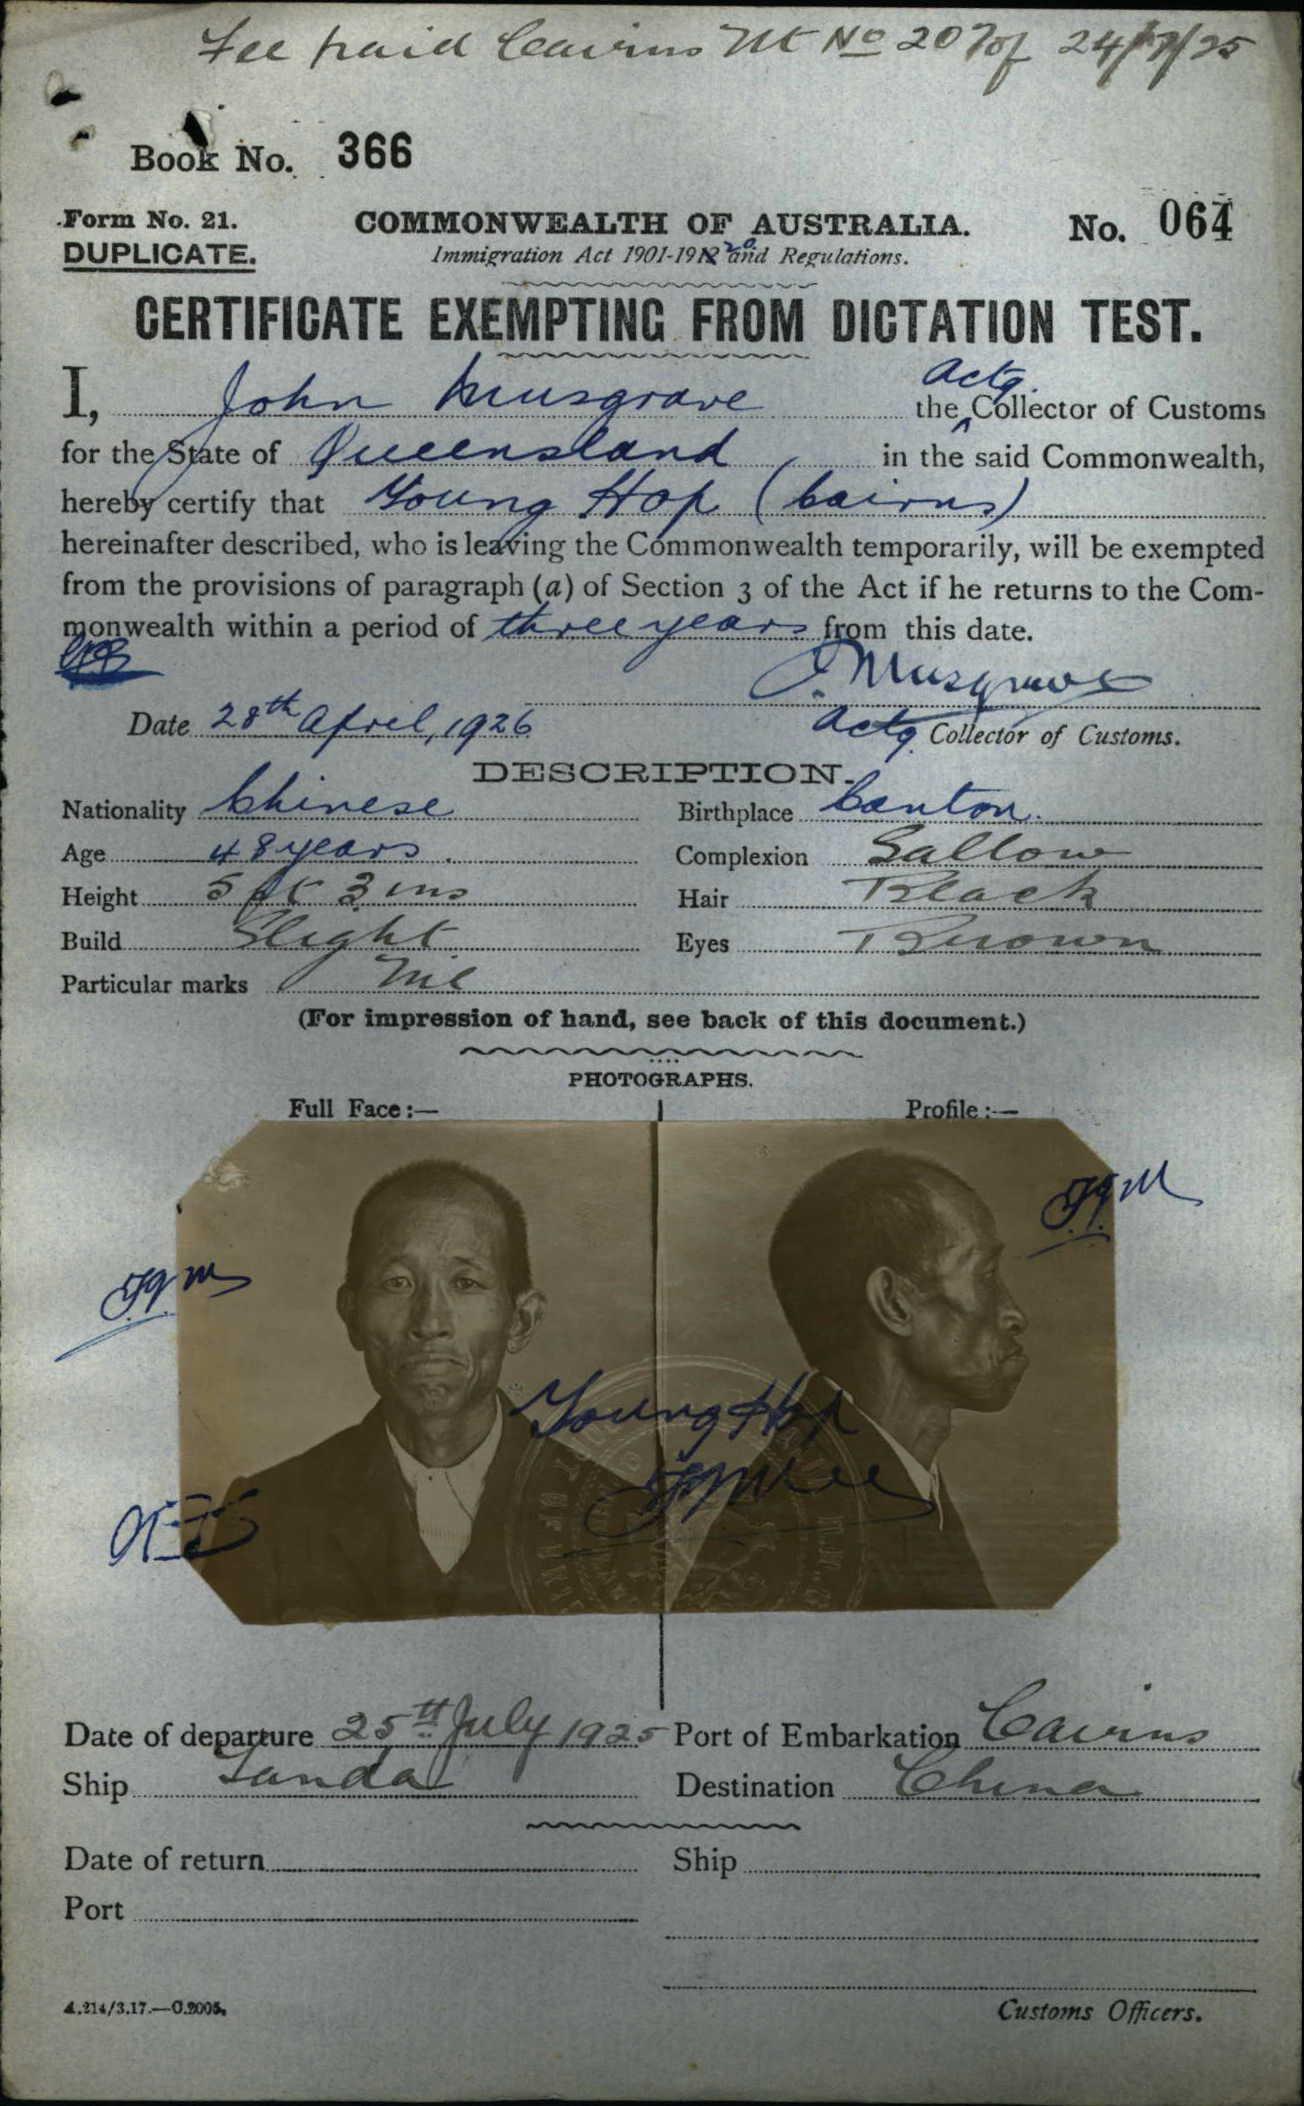 Fee paid Cairns No 207 of 24/7/25
Book No. 366
Form No. 21.
COMMONWEALTH OF AUSTRALIA.
No. 064
DUPLICATE.
Immigration Act 1901-1920 and Regulations.
CERTIFICATE EXEMPTING FROM DICTATION TEST.
I, John Musgrave the Actg. Collector of Customs
for the State of Queensland in the said Commonwealth,
hereby certify that Young Hop (Cairns)
hereinafter described, who is leaving the Commonwealth temporarily, will be exempted
from the provisions of paragraph (a) of Section 3 of the Act if he returns to the Com-
monwealth within a period of three years from this date.
J. Musgrave
Date 28th April, 1926
Actg. Collector of Customs.
DESCRIPTION.
Nationality Chinese
Birthplace Canton.
Age 48 years.
Complexion Sallow
Height 5 ft 3 ins
Hair Black
Build Slight
Eyes Brown
Particular marks Nil
(For impression of hand, see back of this document.)
PHOTOGRAPHS.
Full Face:—
Profile:—
Young Hop
Date of departure 25th July 1925
Port of Embarkation Cairns
Ship Tanda
Destination China
Date of return
Ship
Port
A.214/3.17.—C.2005.
Customs Officers.